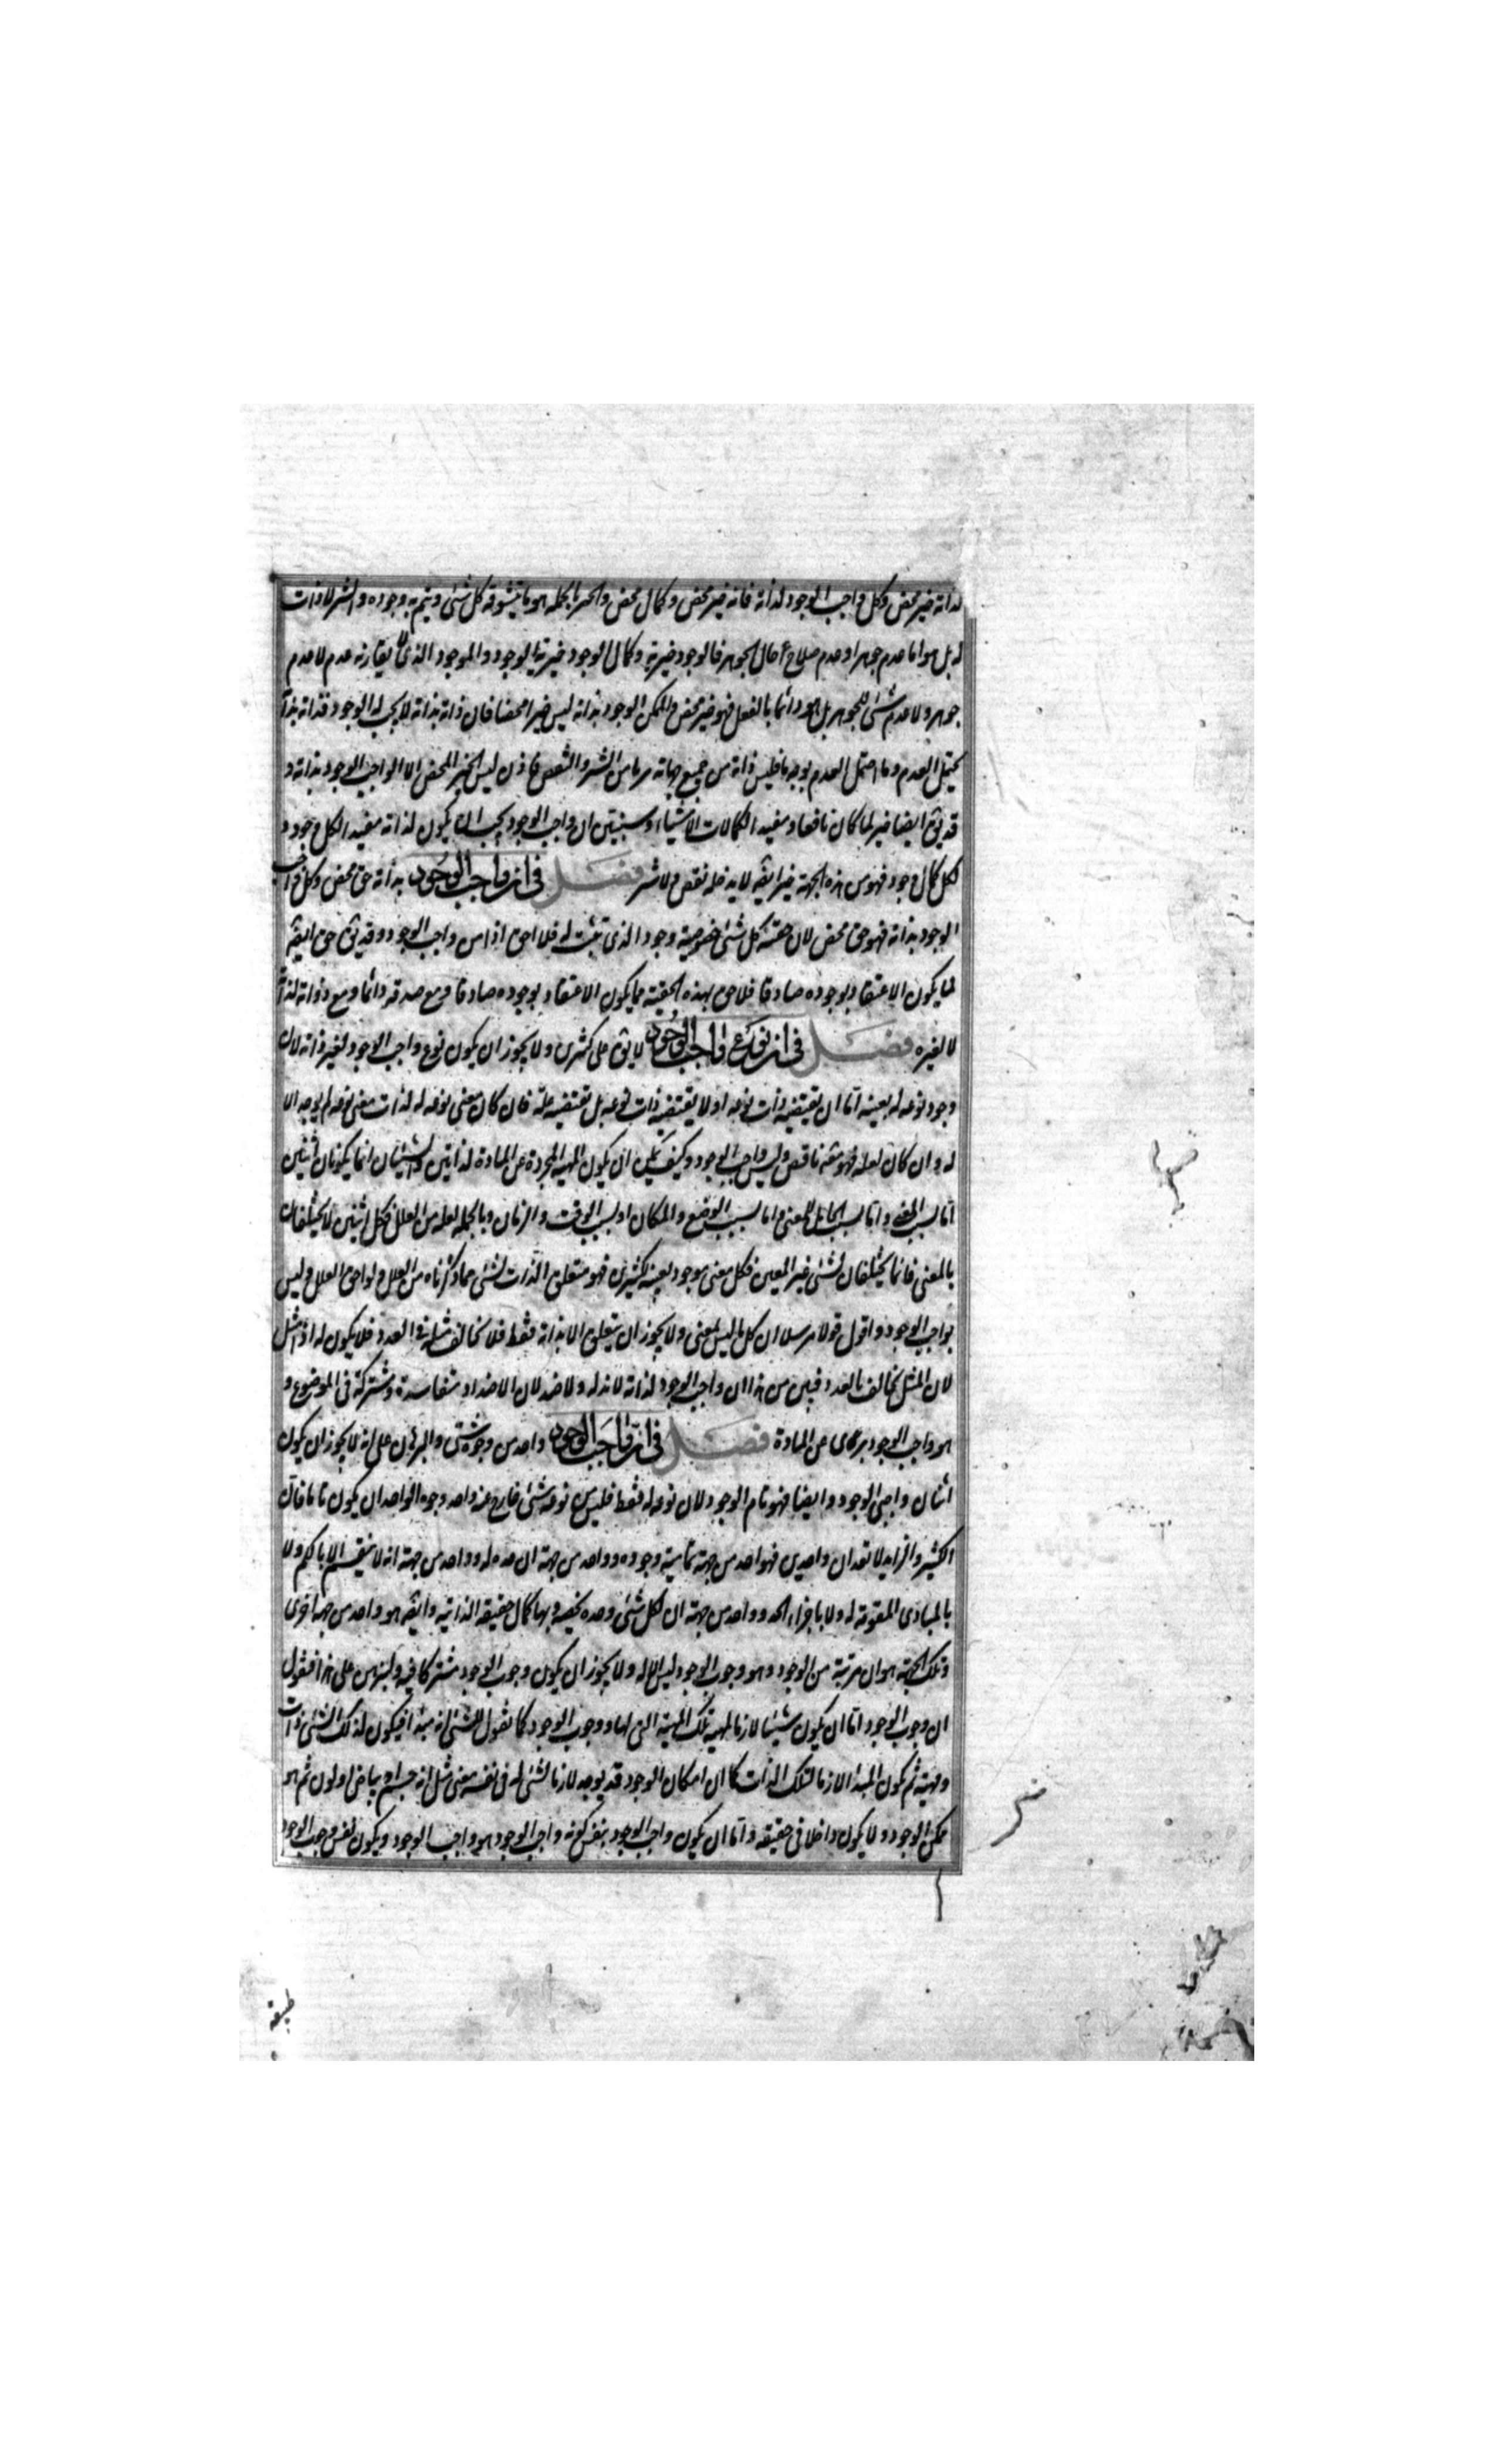 لذاته خير محض وكل واجب الوجود لذاته فانه خير محض وكمال محض والخير بالجمله هو ما يتشوقه كل شئ ويتم به وجوده والشر لا ذات
له بل هو اما عدم جوهر او عدم صلاح حال الجوهر فالوجود خيرية وكمال الوجود خيرية الوجود والموجود الذى لا يقارنه عدم لا عدم
جوهر ولا عدم شئ للجوهر بل هو دائما بالفعل فهو خير محض والممكن الوجود بذاته ليس خيرا محضا فان ذاته بذاته لا يجب له الوجود فذاته بذاته
يحتمل العدم وما احتمل العدم بوجه ما فليس ذاته من جميع جهاته بريا من الشر والنقص فاذن ليس الخير المحض الا الواجب الوجود بذاته و
قد يق ايضا خير لما كان نافعا ومفيد الكمالات الاشياء وسنبين ان واجب الوجود يجب ان يكون لذاته مفيد الكل وجود و
لكل كمال وجود فهو من هذه الجهة خير ايضه لا يدخله نقص ولا شر فصل فى ان واجب الوجود بذاته حق محض وكل واجب
الوجود بذاته فهو حق محض لان حقية كل شئ خصوصية وجود الذى تثبت له فلا احق اذا من واجب الوجود وقد يق حق ايضه
لما يكون الاعتقاد بوجوده صادقا فلا حق بهذه الحقية مما يكون الاعتقاد بوجوده صادقا ومع صدقه دائما ومع دوامه لذاته
لا لغيره فصل فى ان نوع واجب الوجود لا يق على كثيرين ولا يجوز ان يكون نوع واجب الوجود لغير ذاته لان
وجود نوعه له بعينه اما ان يقتضيه ذات نوعه او لا يقتضيه ذات نوعه بل تقتضيه علة فان كان معنى نوعه له لذات معنى نوعه لم يوجد الا
له وان كان لعلة فهو معلول ناقص وليس واجب الوجود وكيف يمكن ان يكون المهية المجردة عن المادة لذاتين والشيئان انما يكونان اثنين
اما بسبب المعنى واما بسبب الحامل للمعنى واما بسبب الوضع والمكان او بسبب الوقت والزمان وبالجمله لعلة من العلل فكل اثنين لا يختلفان
بالمعنى فانما يختلفان بشئ غير المعنى فكل معنى موجود بعينه لكثيرين فهو متعلق الذات بشئ مما ذكرناه من العلل ولواحق العلل وليس
بواجب الوجود واقول قولا مرسلا ان كل ما ليس لمعنى ولا يجوز ان يتعلق الا بذاته فقط فلا يخالف مثله فى العدد فلا يكون له اذا مثل
لان المثل يخالف بالعدد فبين من هذا ان واجب الوجود لذاته لا ند له ولا ضد لان الاضداد متفاسدة ومشتركة فى الموضوع و
هو واجب الوجود برئ عن المادة فصل فى ان واجب الوجود واحد من وجوه شتى والبرهان على انه لا يجوز ان يكون
اثنان واجبى الوجود وايضا فهو تام الوجود لان نوعه له فقط فليس من نوعه شئ خارج عنه واحد وجوه الواحد ان يكون تاما فان
الكثير والزايد لا تعدان واحدين فهو واحد من جهة تمامية وجوده وواحد من جهة ان حده له وواحد من جهة انه لا ينقسم لا بالكم ولا
بالمبادى المقومة له ولا باجزاء الحد وواحد من جهة ان لكل شئ وحده يخصه وبها كمال حقيقة الذاتية وايضه هو واحد من جهة اخرى
وتلك الجهة هو ان مرتبة من الوجود وهو وجوب الوجود ليس الا له ولا يجوز ان يكون وجوب الوجود مشتركا فيه ولنبرهن على هذا فنقول
ان وجوب الوجود اما ان يكون شيئا لازما لمهية تلك المهية التى لها وجوب الوجود كما نقول للشئ انه مبدأ فيكون لذلك الشئ ذات
ومهية ثم يكون المبدأ لازما لتلك الذات كما ان امكان الوجود قد يوجد لازما لشئ له فى نفسه معنى مثل انه جسم او بياض او لون ثم هو
ممكن الوجود ولا يكون داخلا فى حقيقته واما ان يكون واجب الوجود بنفس كونه واجب الوجود هو واجب الوجود ويكون نفس وجوب الوجود
طبيعة